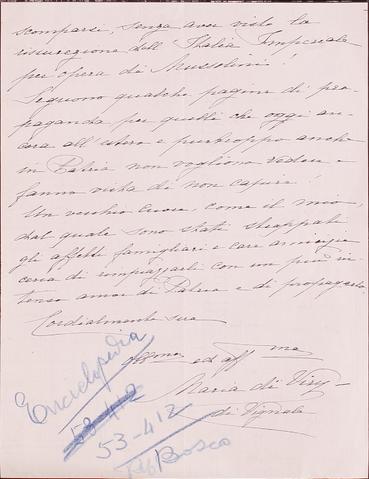 scomparsi, senza aver visto la
risurrezione dell'Italia Imperiale
per opera di Mussolini!
Seguono qualche pagine di pro-
paganda per quelli che oggi an-
cora all'estero e purtroppo anche
in Patria non vogliono vedere e
fanno vista di non capire!
Un vecchio cuore, come il mio,
dal quale sono stati strappati
gli affetti famigliari e care amicizie
cerca di rimpiazzarli con un più in-
tenso amor di Patria e di propagarlo.
Cordialmente sua
ed aff ma
Maria di Viry
di Vignale
Enciclopedia
53-412
53-412
Bosco